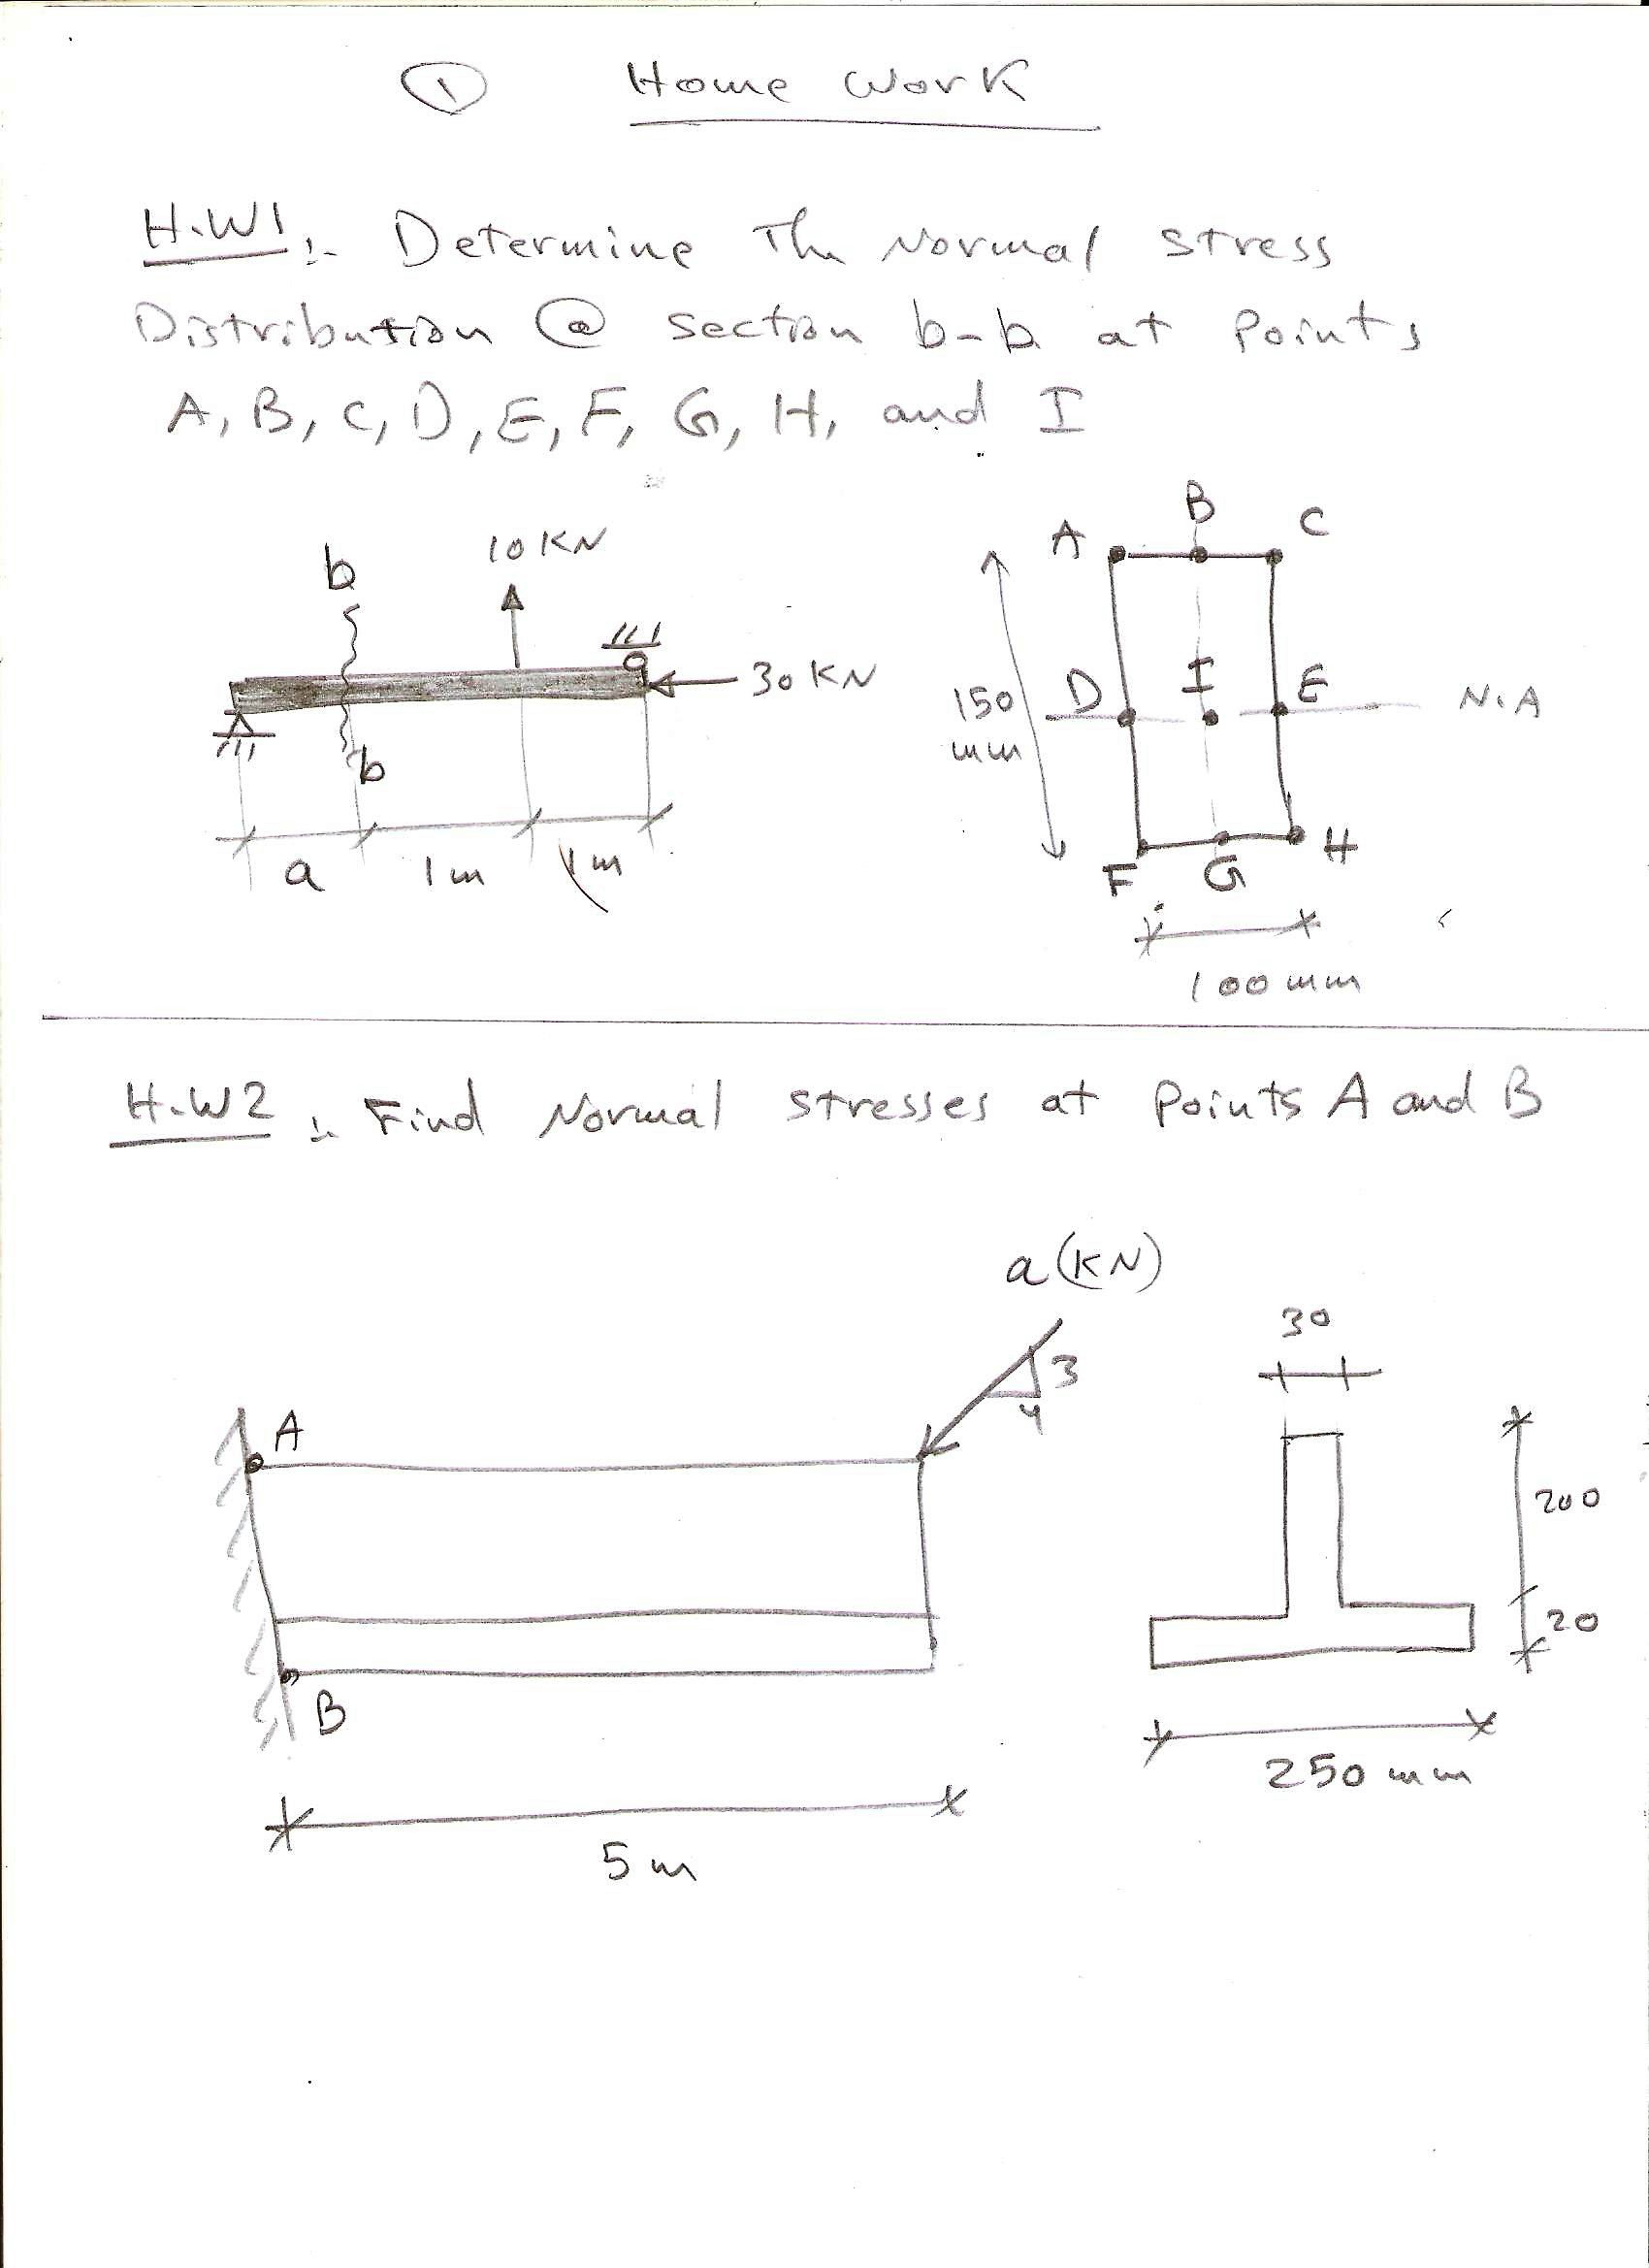 1 Home Work
H.W1:- Determine The Normal Stress
Distribution @ section b-b at Points
A, B, C, D, E, F, G, H, and I
10 KN
b
30 KN
b
a 1m 1m
A B C
150 mm
D I E N.A
F G H
100 mm
H.W2:- Find Normal Stresses at Points A and B
a (KN)
3
4
30
A
200
20
B
250 mm
5 m